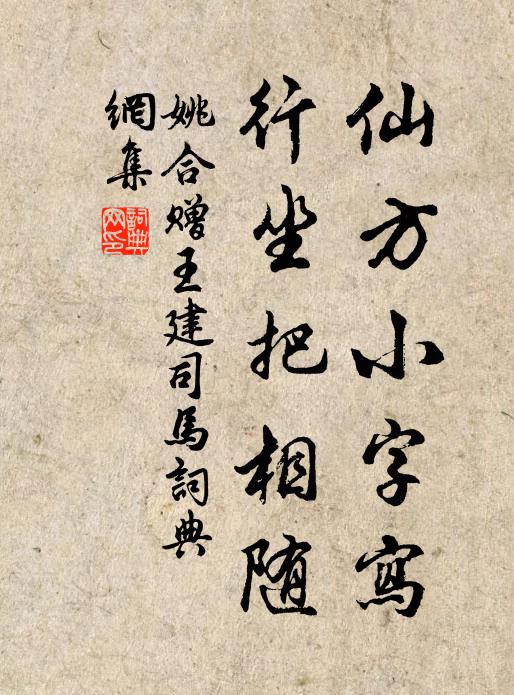 仙方小字寫
行坐把相随
姚合赠王建司馬詞典
網集
詞典網印